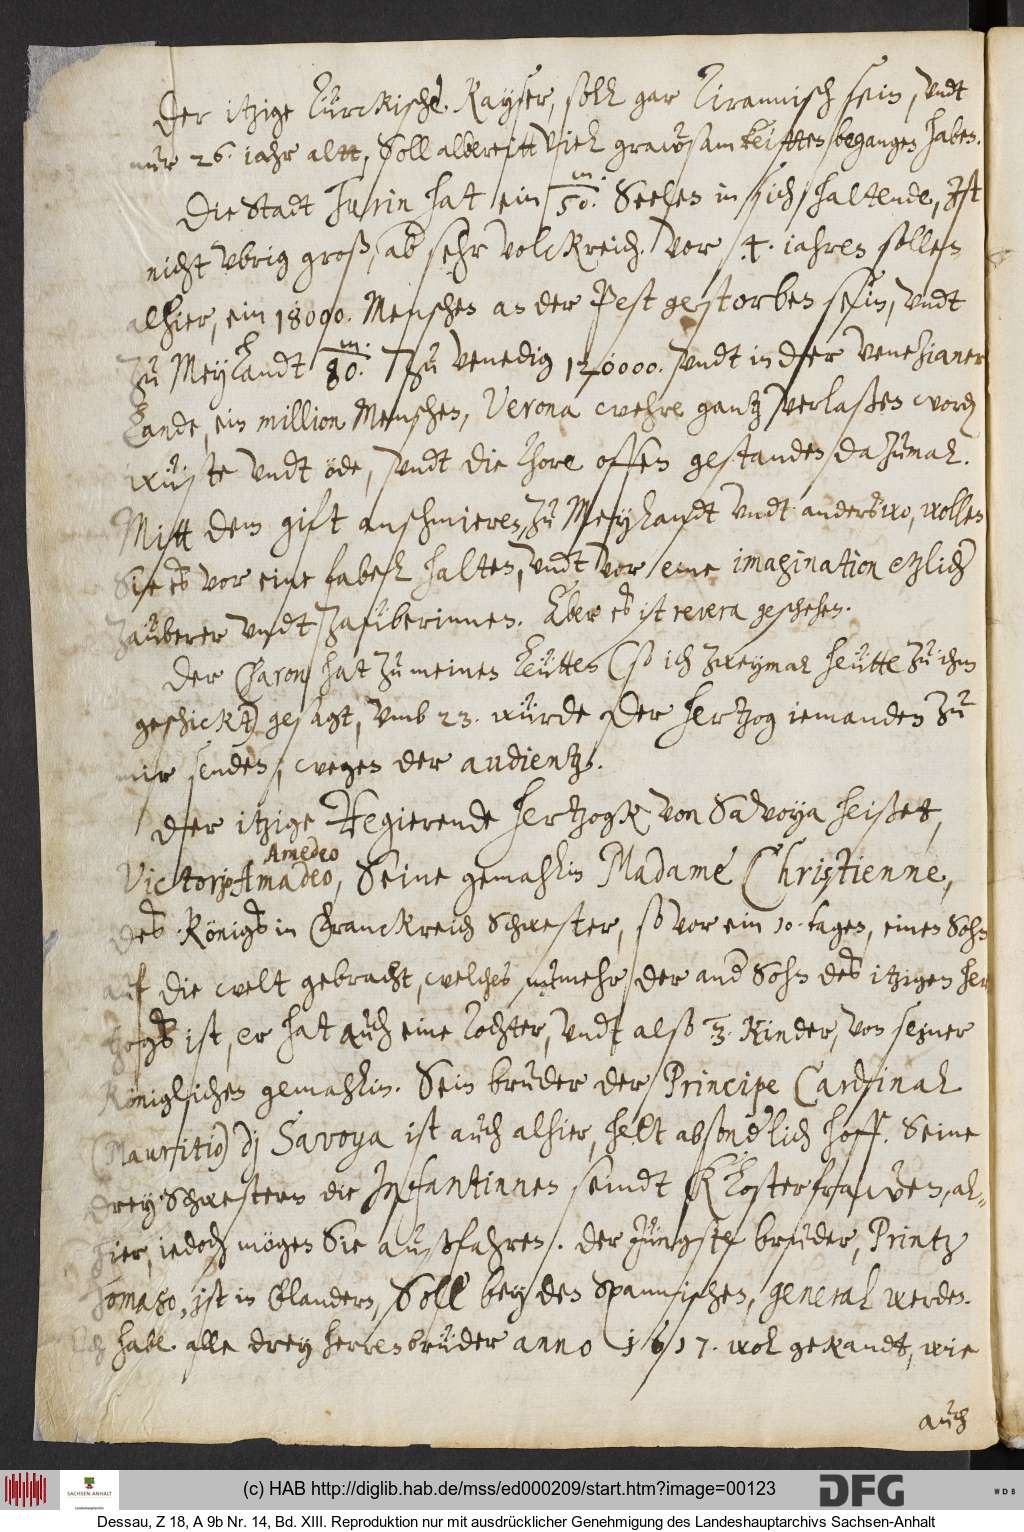 Der itzige Türckische Kayser, soll gar Tirannisch sein, vndt
nur 26. iahr altt, Soll allbereitt viel grawsamkeitten begangen haben.
Die Stadt Turin hat ein 50. m. Seelen in sich haltende, Jst
nicht vbrig groß, ab sehr volckreich. Vor 4. iahren sollen
alhier, ein 18000. Menschen an der Pest gestorben sein, vndt
zu Meylandt 80. m. Zu Venedig 120000. vndt in der Venezianer
Lande, ein million Menschen, Verona wehre gantz verlaßen word
wüste vndt öde, vndt die Thore offen gestanden dazumal.
Mitt dem gift anschmieren, zu Meylandt vndt anderswo, wollen
Sie es vor eine fabell halten, vndt vor eine imagination etzlicher
Zauberer vndt Zauberinnen. Aber es ist revera geschehen.
Der Charon hat zu meinen Leütten (so ich zweymal heütte zu ihm
geschickt) gesagt, vmb 23. würde der hertzog iemanden zu
mir senden, wegen der audientz.
Der itzige Regierende hertzogk von Savoya heißet,
Amedeo
Victorio Amadeo, Seine gemahlin Madame Christienne,
des Königs in Franckreich Schwester, so vor ein 10. tagen, einen Sohn
auf die welt gebracht, welches nunmehr der and Sohn des itzigen her
tzogs ist, er hat auch eine Tochter, vndt also 3. Kinder, von seiner
Königlichen gemahlin. Sein bruder der Principe Cardinal
(Mauritio) dj Savoya ist auch alhier, helt absonderlich hoff. Seine
drey Schwestern die Infantinnen seindt Klosterfrawen, al-
hier, iedoch mögen Sie außfahren. der Jüngste bruder, Printz
Tomaso, ist in Flandern, Soll bey den Spannischen, general werden.
Ich habe alle drey herren brüder anno 1617. wol gekandt, wie
auch
(c) HAB http://diglib.hab.de/mss/ed000209/start.htm?image=00123
SACHSEN-ANHALT
DFG
WDB
Dessau, Z 18, A 9b Nr. 14, Bd. XIII. Reproduktion nur mit ausdrücklicher Genehmigung des Landeshauptarchivs Sachsen-Anhalt